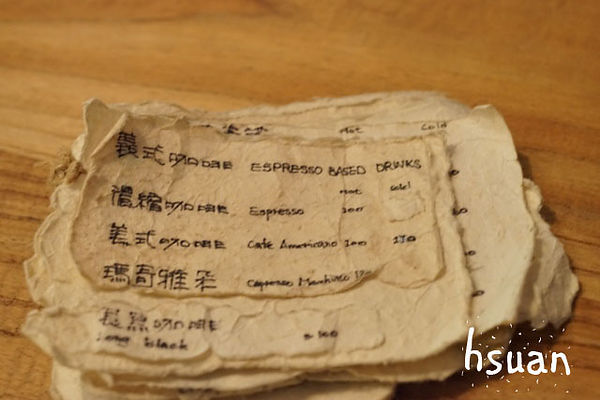 Hot Cold
義式咖啡 ESPRESSO BASED DRINKS
Hot Cold
濃縮咖啡 Espresso 100
美式咖啡 Cafe Americano 100 130
瑪奇雅朵 Espresso Macchiato
長黑咖啡
Long black 100
hsuan